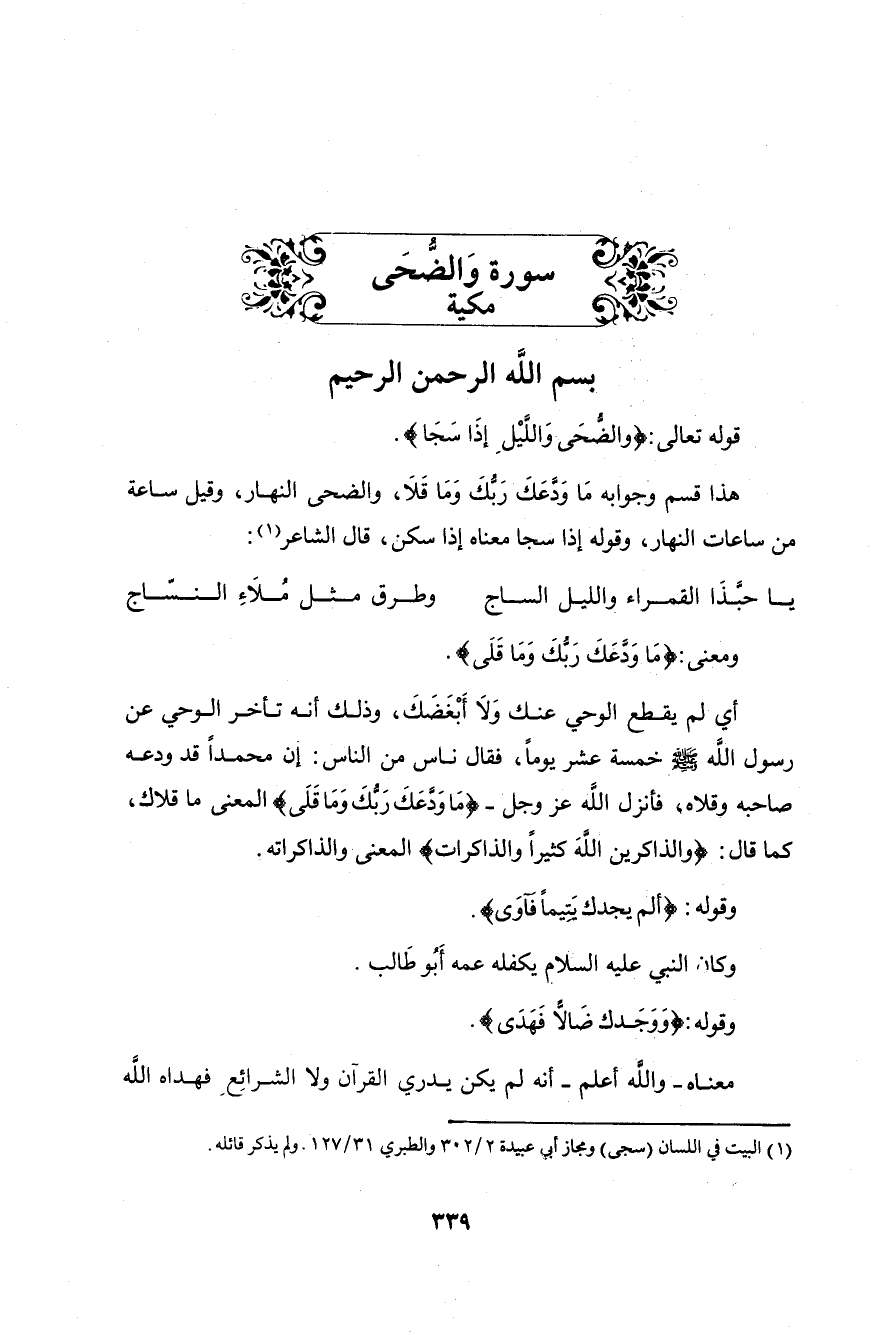 سورة وَالضُّحَى
مكية
بسم اللَّه الرحمن الرحيم
قوله تعالى: ﴿والضُّحَى وَاللَّيْلِ إذَا سَجَا﴾.
هذا قسم وجوابه مَا وَدَّعَكَ رَبُّكَ وَمَا قَلَا، والضحى النهار، وقيل ساعة
من ساعات النهار، وقوله إذا سجا معناه إذا سكن، قال الشاعر(١):
يا حبَّذَا القمراء والليل الساج وطرق مثل مُلَاءِ النسّاج
ومعنى: ﴿مَا وَدَّعَكَ رَبُّكَ وَمَا قَلَى﴾.
أي لم يقطع الوحي عنك وَلَا أَبْغَضَكَ، وذلك أنه تأخر الوحي عن
رسول اللَّه ﷺ خمسة عشر يوماً، فقال ناس من الناس: إن محمداً قد ودعه
صاحبه وقلاه، فأنزل اللَّه عز وجل - ﴿مَا وَدَّعَكَ رَبُّكَ وَمَا قَلَى﴾ المعنى ما قلاك،
كما قال: ﴿والذاكرين اللَّهَ كثيراً والذاكرات﴾ المعنى والذاكراته.
وقوله: ﴿ألم يجدك يَتِيماً فَآوَى﴾.
وكان النبي عليه السلام يكفله عمه أَبُو طَالب.
وقوله: ﴿وَوَجَدك ضَالًّا فَهَدَى﴾.
معناه - واللَّه أعلم - أنه لم يكن يدري القرآن ولا الشرائعِ فهداه اللَّه
(١) البيت في اللسان (سجى) ومجاز أبي عبيدة ٣٠٢/٢ والطبري ١٢٧/٣١. ولم يذكر قائله.
٣٣٩